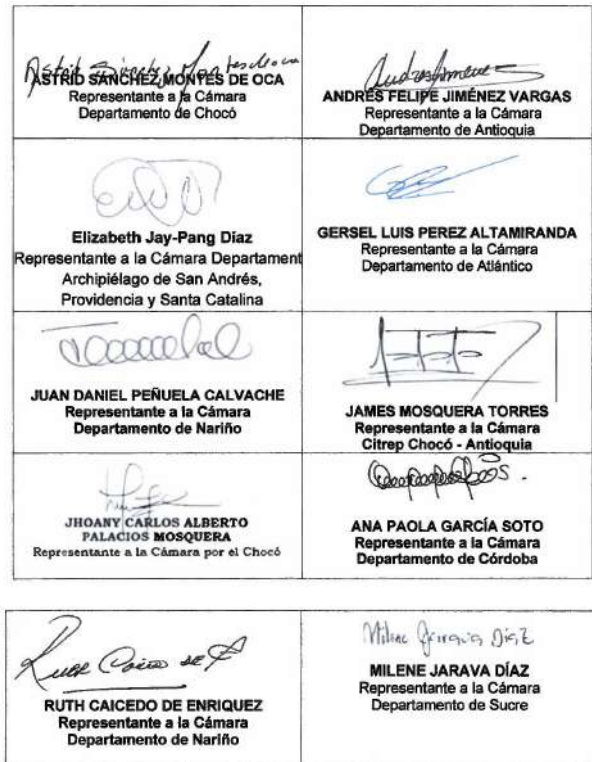 Astrid Sánchez Montes de oca
ASTRID SÁNCHEZ MONTES DE OCA
Representante a la Cámara
Departamento de Chocó
ANDRÉS FELIPE JIMÉNEZ VARGAS
Representante a la Cámara
Departamento de Antioquia
Elizabeth Jay-Pang Díaz
Representante a la Cámara Departament
Archipiélago de San Andrés,
Providencia y Santa Catalina
GERSEL LUIS PEREZ ALTAMIRANDA
Representante a la Cámara
Departamento de Atlántico
JUAN DANIEL PEÑUELA CALVACHE
Representante a la Cámara
Departamento de Nariño
JAMES MOSQUERA TORRES
Representante a la Cámara
Citrep Chocó - Antioquia
JHOANY CARLOS ALBERTO
PALACIOS MOSQUERA
Representante a la Cámara por el Chocó
ANA PAOLA GARCÍA SOTO
Representante a la Cámara
Departamento de Córdoba
RUTH CAICEDO DE ENRIQUEZ
Representante a la Cámara
Departamento de Nariño
Milene Jarava Díaz
MILENE JARAVA DÍAZ
Representante a la Cámara
Departamento de Sucre